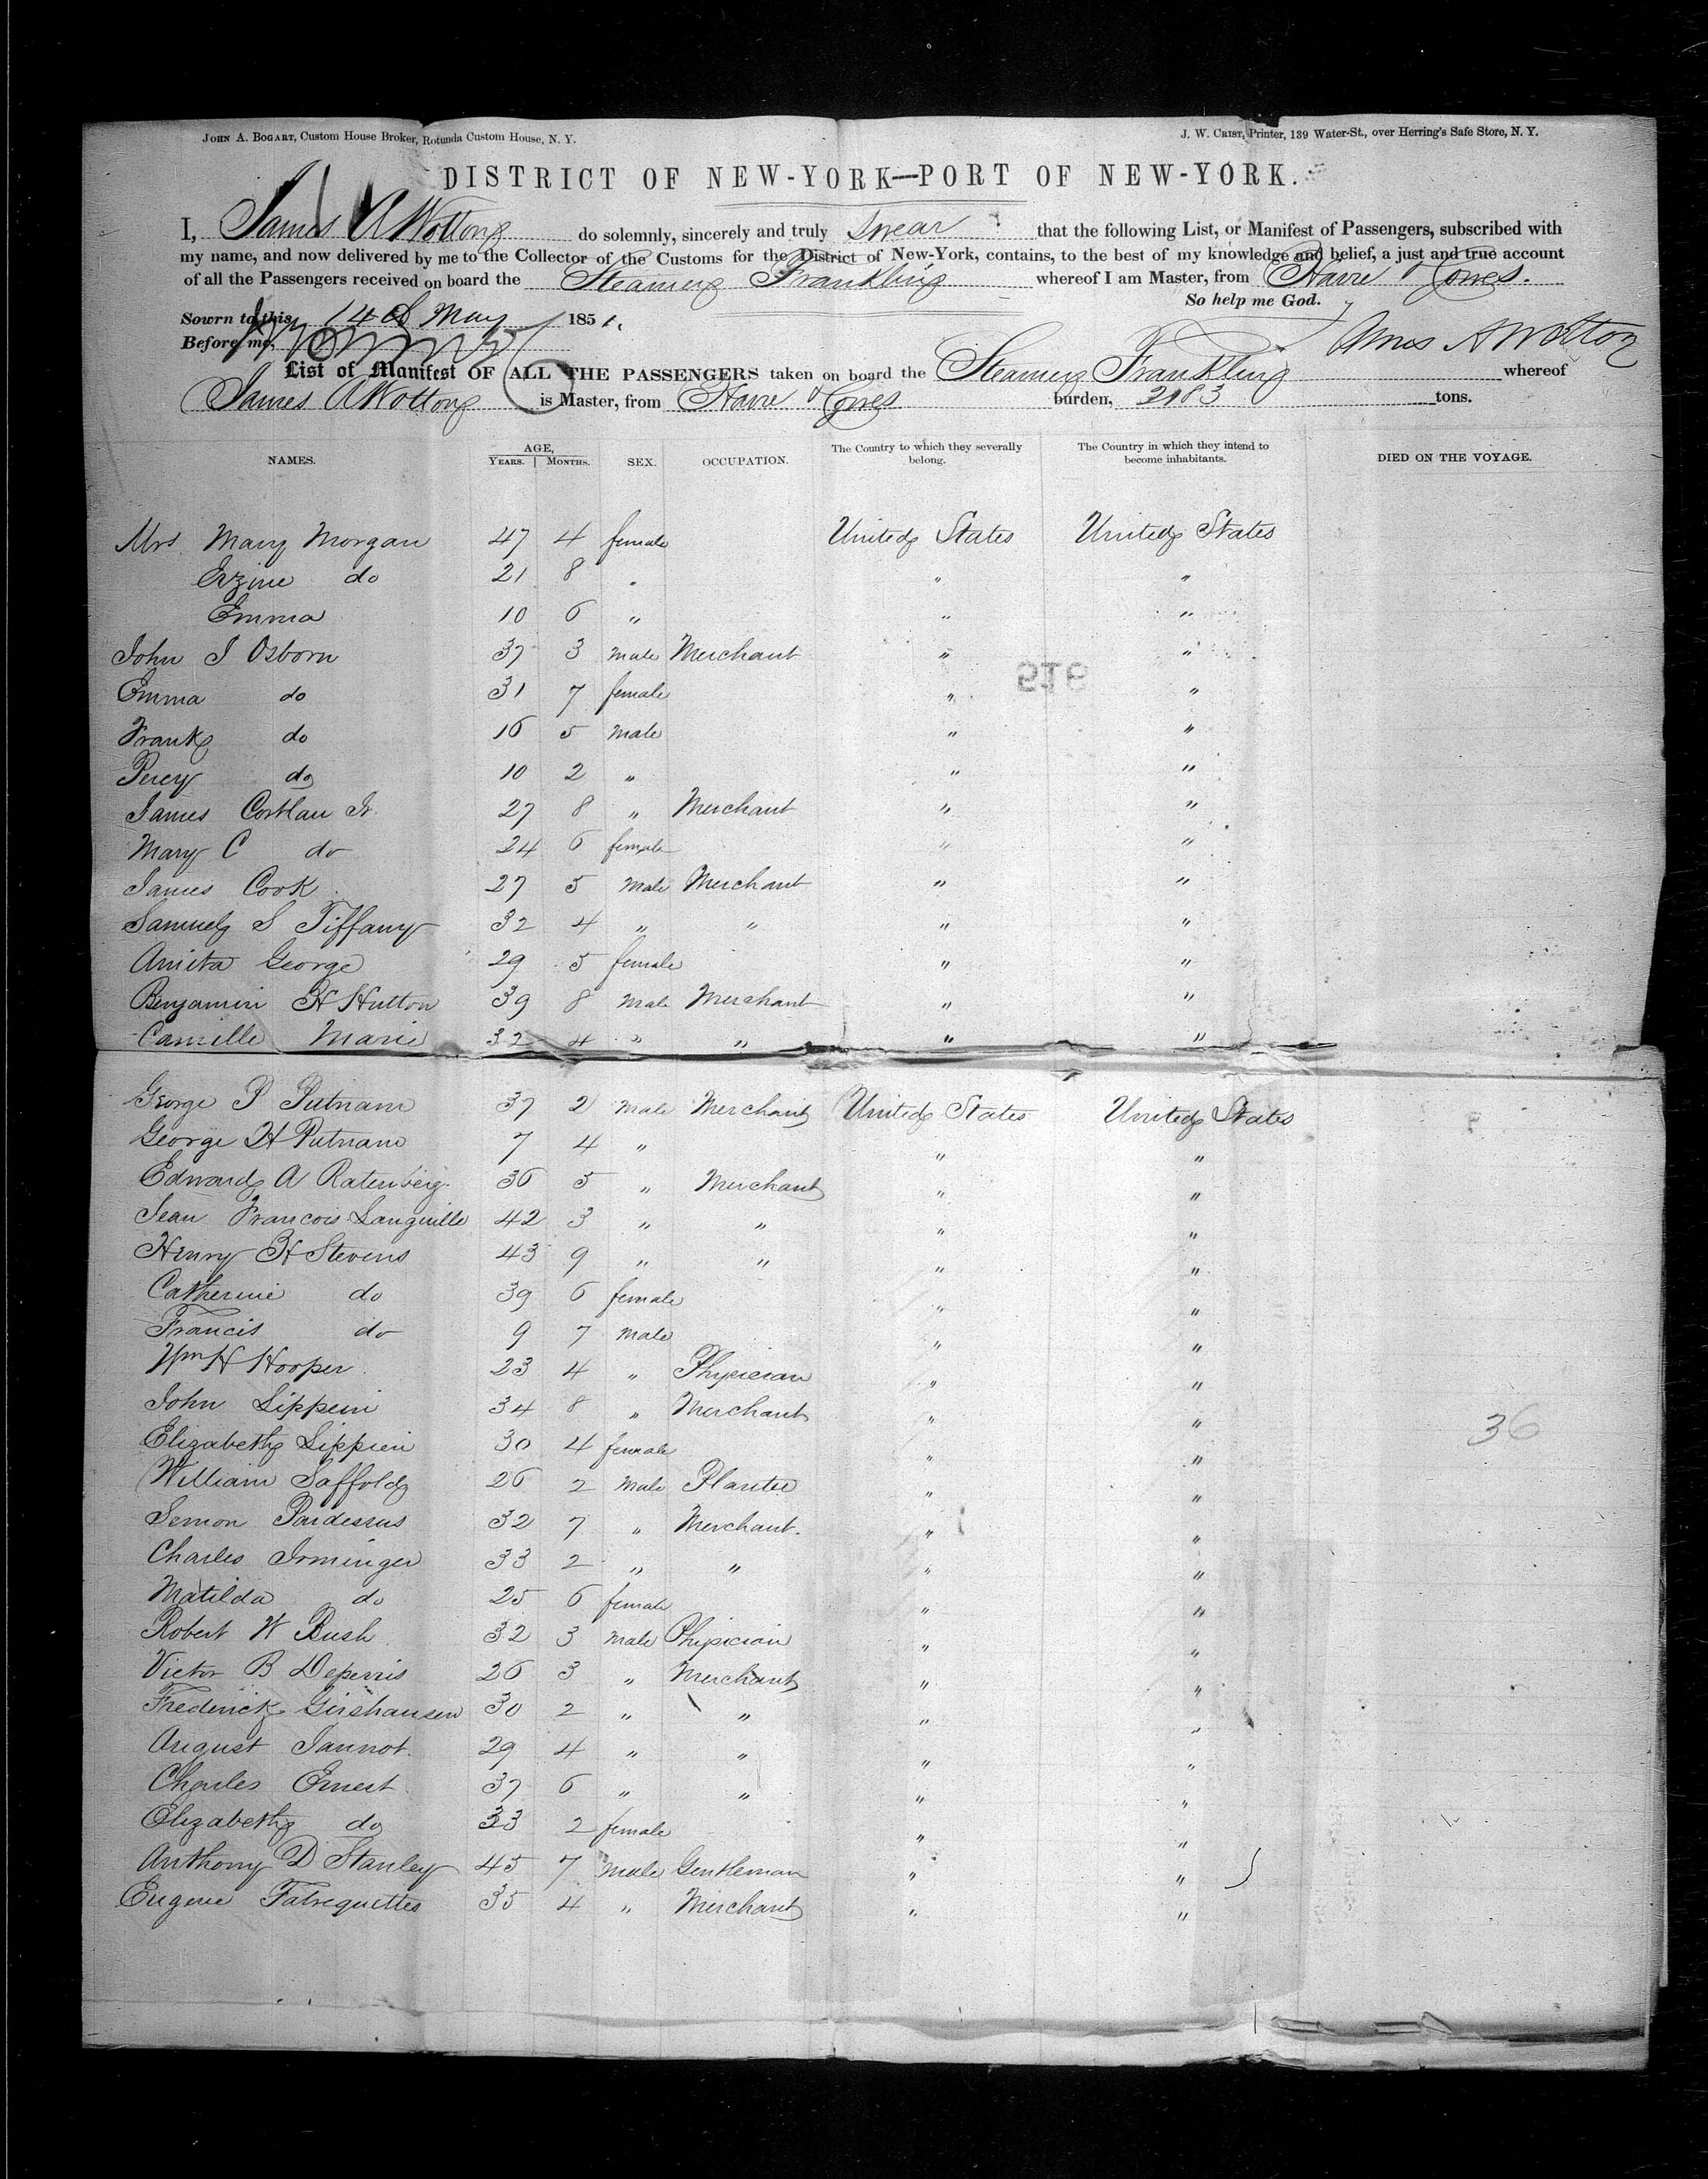 JOHN A. BOGART, Custom House Broker, Rotunda Custom House, N. Y. J. W. CRIST, Printer, 139 Water-St., over Herring's Safe Store, N. Y.
DISTRICT OF NEW-YORK—PORT OF NEW-YORK.
I, James A Wotton do solemnly, sincerely and truly swear that the following List, or Manifest of Passengers, subscribed with
my name, and now delivered by me to the Collector of the Customs for the District of New-York, contains, to the best of my knowledge and belief, a just and true account
of all the Passengers received on board the Steamer Franklin whereof I am Master, from Havre & Cowes.
So help me God.
Sowrn to this 14 May 1851.
Before me,
James A Wotton
List of Manifest OF ALL THE PASSENGERS taken on board the Steamer Franklin whereof
James A Wotton is Master, from Havre & Cowes burden, 2183 tons.
NAMES. AGE, YEARS. MONTHS. SEX. OCCUPATION. The Country to which they severally belong. The Country in which they intend to become inhabitants. DIED ON THE VOYAGE.
Mrs. Mary Morgan 47 4 female United States United States
do 21 8 " " "
Emma 10 6 " " "
John J Osborn 37 3 male Merchant " "
516
Emma do 31 7 female " "
Frank do 16 5 male " "
Percy do 10 2 " " "
James Jr. 27 8 " Merchant " "
Mary C do 24 6 female " "
James Cook 27 5 male Merchant " "
Samuel S Tiffany 32 4 " " " "
Anita George 29 5 female " "
Benjamin H Hutton 39 8 male Merchant " "
Camille Marie 32 4 " " " "
George P Putnam 37 2 male Merchant United States United States
George H Putnam 7 4 " " "
Edward A 36 5 " Merchant " "
Jean Francois 42 3 " " " "
Henry H Stevens 43 9 " " " "
Catherine do 39 6 female " "
Francis do 9 7 male " "
Wm H Hooper 23 4 " Physician " "
John 34 8 " Merchant " "
36
Elizabeth 30 4 female " "
William Saffold 26 2 male Planter " "
Semon Pardessus 32 7 " Merchant. " "
Charles Irminger 33 2 " " " "
Matilda do 25 6 female " "
Robert W Bush 32 3 male Physician " "
Victor B 26 3 " Merchant " "
Frederick Girshausen 30 2 " " " "
August Jannot 29 4 " " " "
Charles Ernest 37 6 " " " "
Elizabeth do 33 2 female " "
Anthony D Stanley 45 7 male Gentleman " "
Eugene Fatrequettes 35 4 " Merchant " "